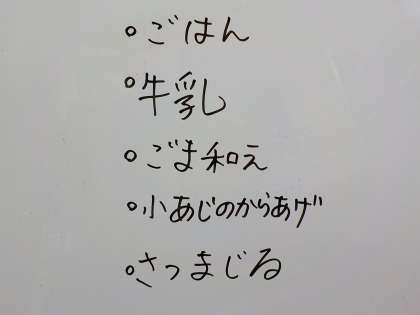 ○ごはん
○牛乳
○ごま和え
○小あじのからあげ
○さつまじる